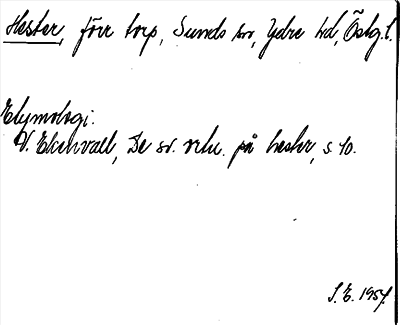 Hester, förr torp, Sunds sn, Ydre hd, Östg.l.
Etymologi:
V. Ekenvall, De sv. ortn. på hester, s. 10.
S.E. 1957.